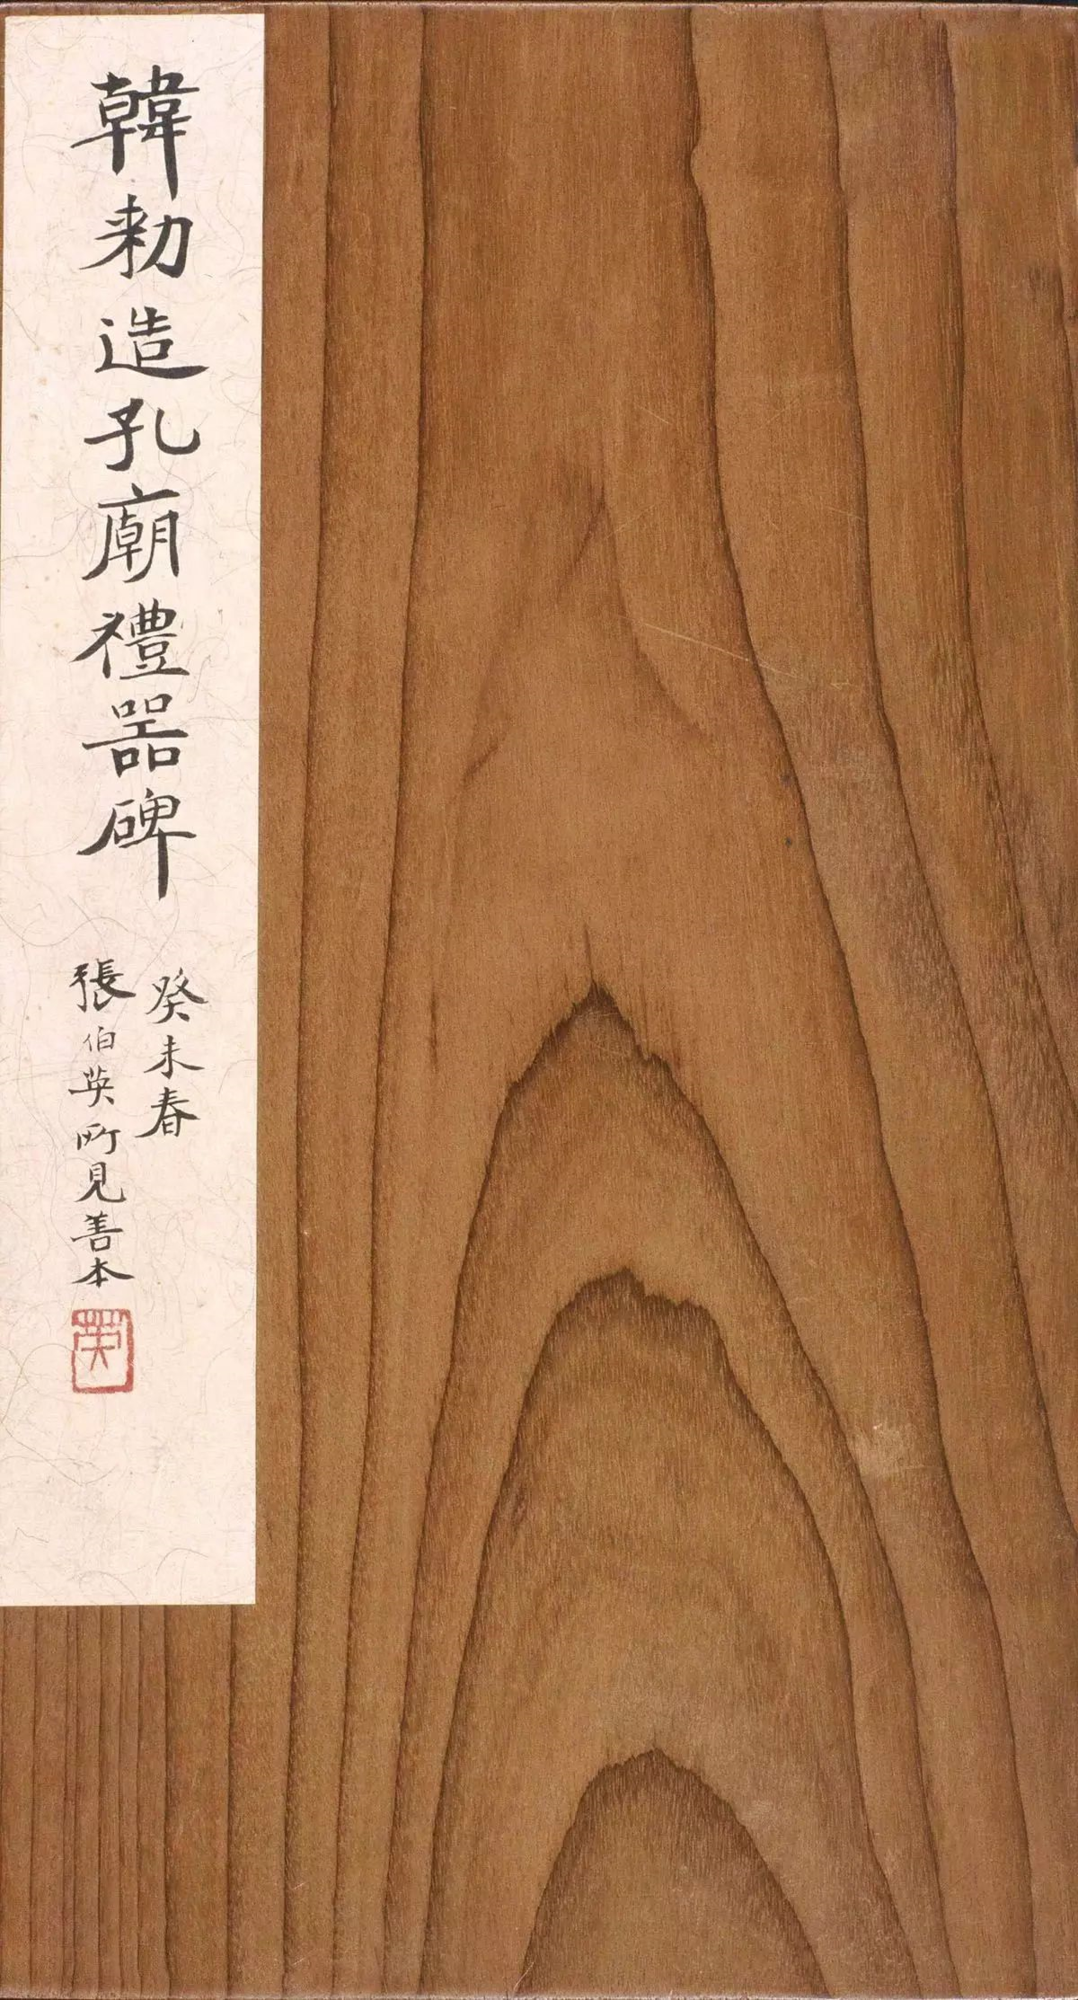 韓勑造孔廟禮器碑
癸未春
張伯英所見善本
英